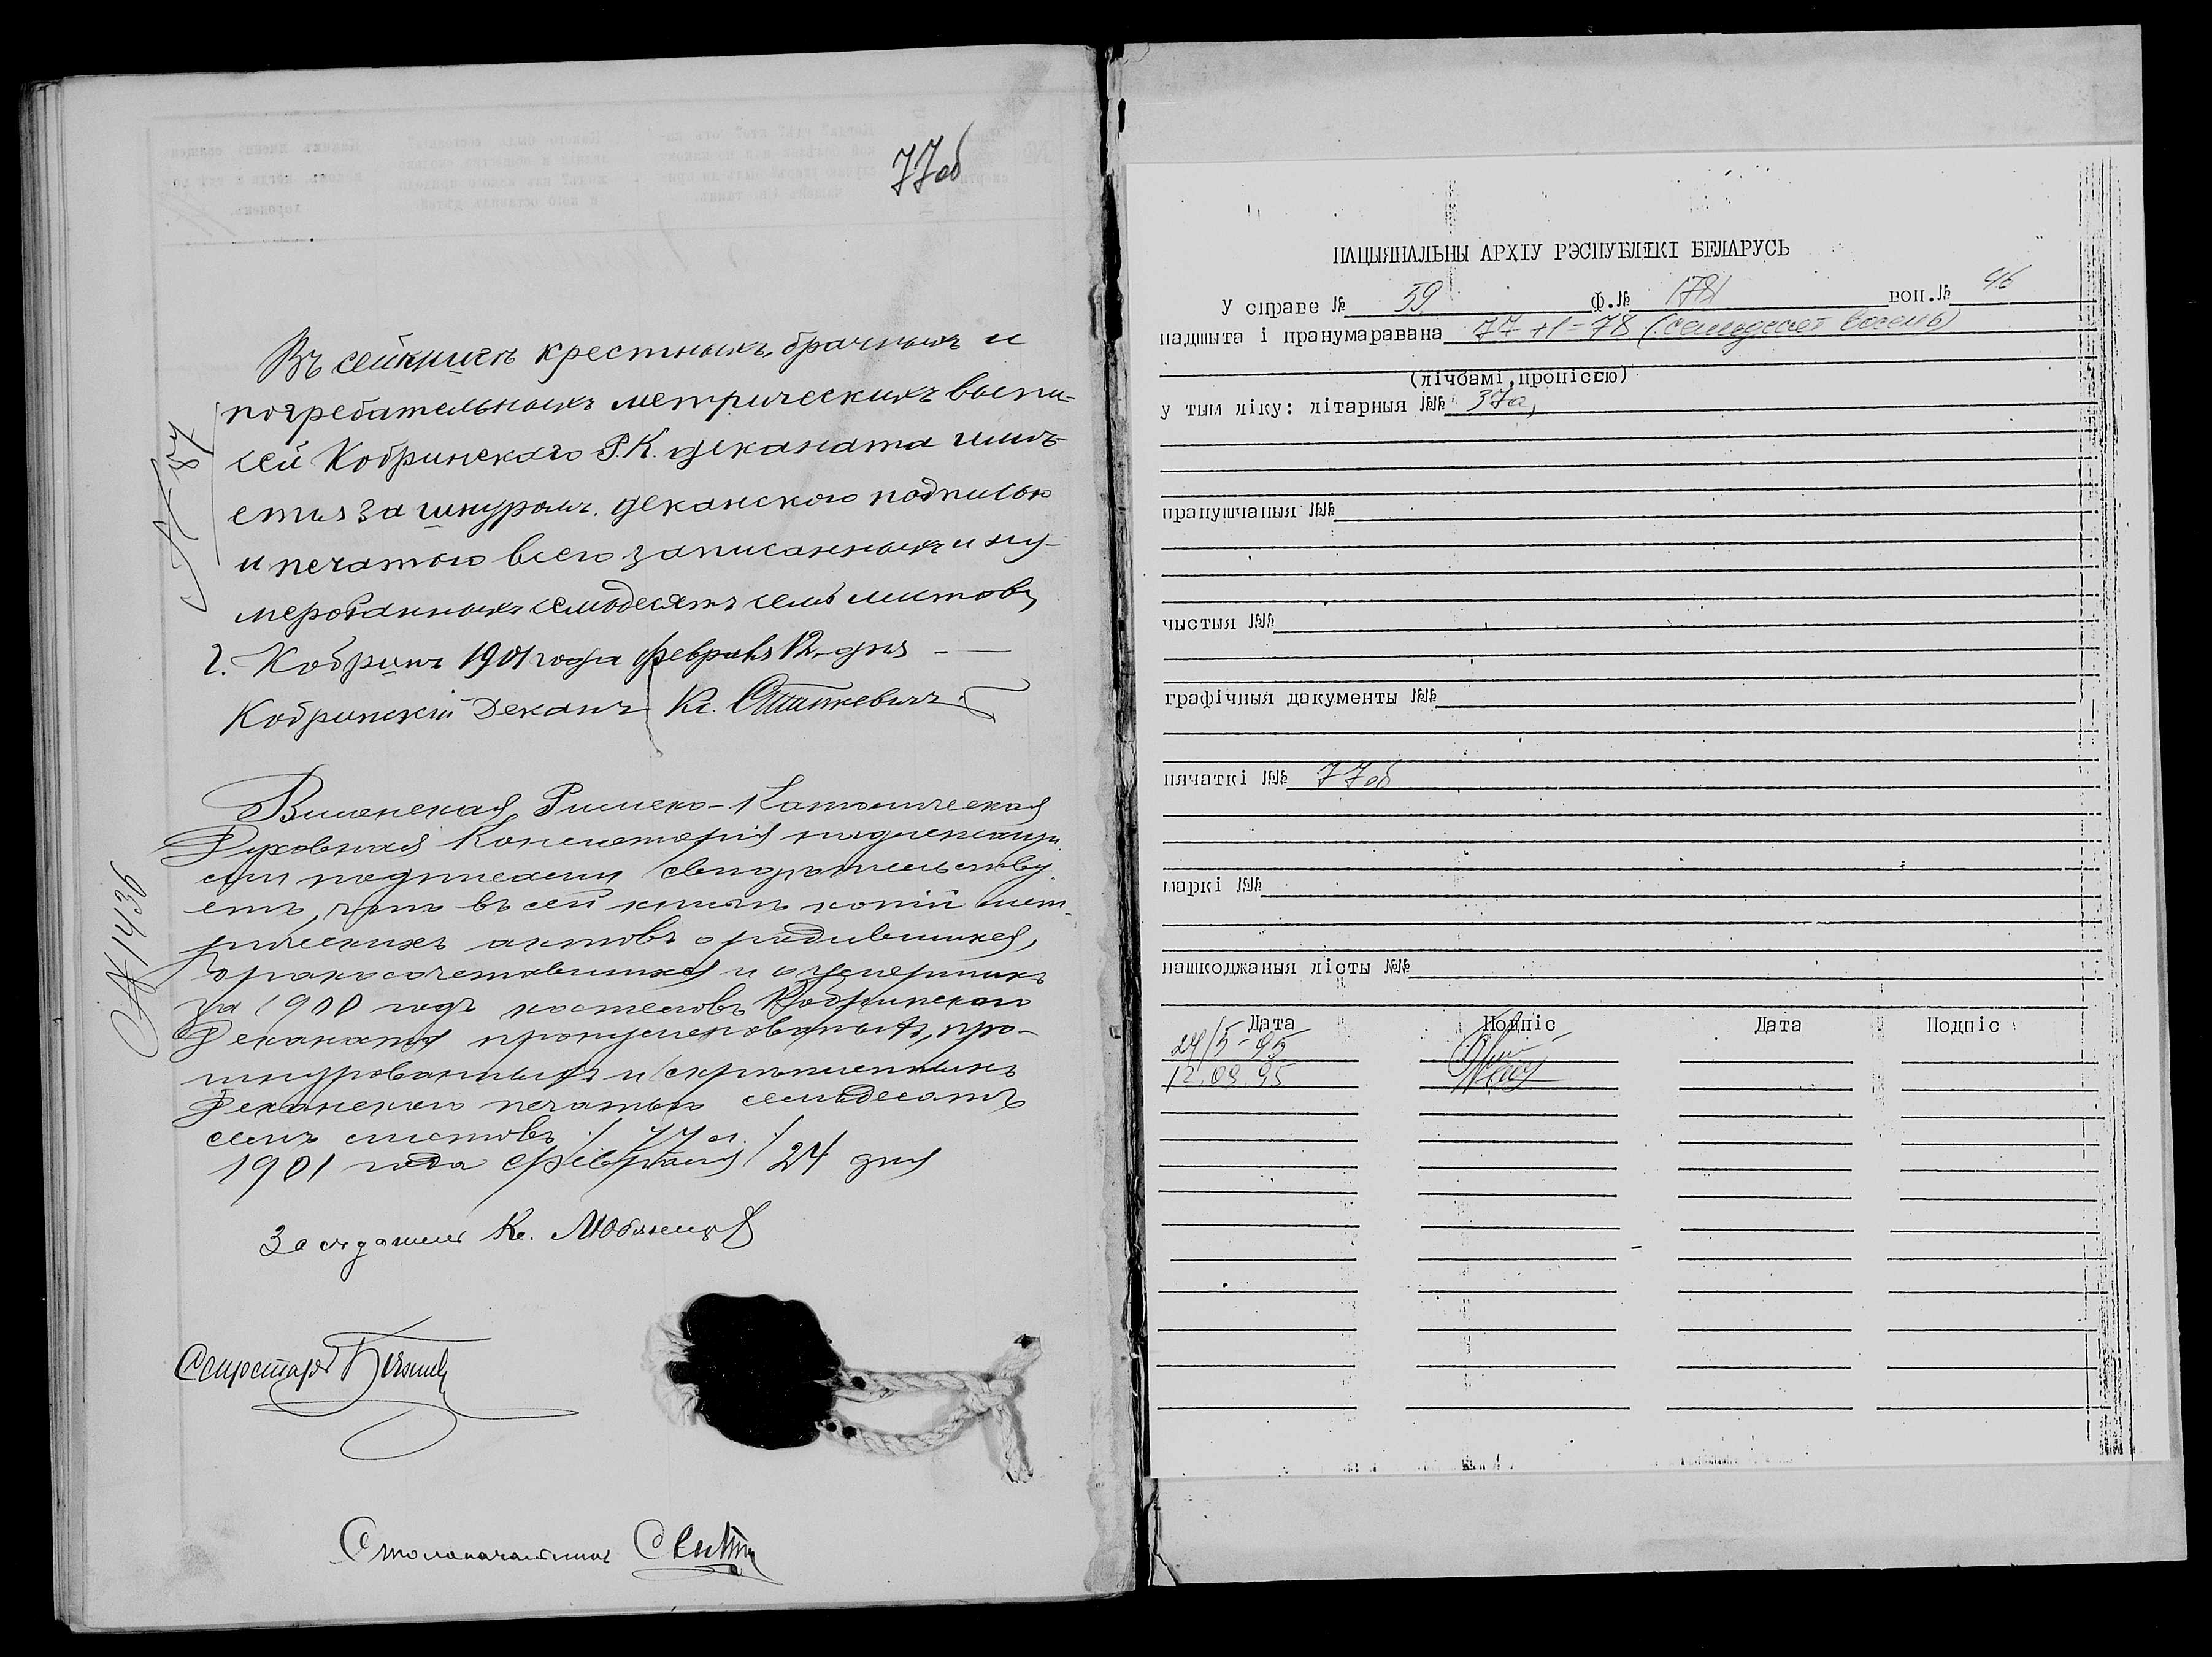 77об
Въ сей книгѣ крестныхъ, брачныхъ и
погребательныхъ метрическихъ выпи-
сей Кобринскаго Р.К. деканата имѣ-
ется за шнуромъ, деканскою подписью
и печатью всего записанныхъ и ну-
мерованныхъ семьдесятъ семь листовъ,
г. Кобринъ 1901 года февраля 12 дня
Кобринскій Деканъ Кс. Станкевичъ
№ 87
Виленская Римско-Католическая
Духовная Консисторія надлежащи-
ми подписями свидѣтельству-
етъ, что въ сей книгѣ копій мет-
рическихъ актовъ о родившихся,
бракосочетавшихся и о умершихъ
за 1900 годъ костеловъ Кобринскаго
Деканата пронумерованныхъ, про-
шнурованныхъ и скрѣпленныхъ
Деканскою печатью семьдесятъ
семь листовъ / 77 л. /
1901 года Февраля 24 дня
№ 1436
Засѣдатель Кс.
Секретарь
Столоначальникъ
НАЦЫЯНАЛЬНЫ АРХІУ РЭСПУБЛІКІ БЕЛАРУСЬ
У справе № 59 Ф.№ 1781 воп.№ 46
падшыта і пранумаравана 77+1=78 (семьдесят восемь)
(лічбамі, пропіссю)
у тым ліку: літарныя №№ 37а,
прапушчаныя №№
чыстыя №№
графічныя дакументы №№
пячаткі №№ 77об
маркі №№
пашкоджаныя лісты №№
Дата Подпіс Дата Подпіс
24/5-95
12.09.95